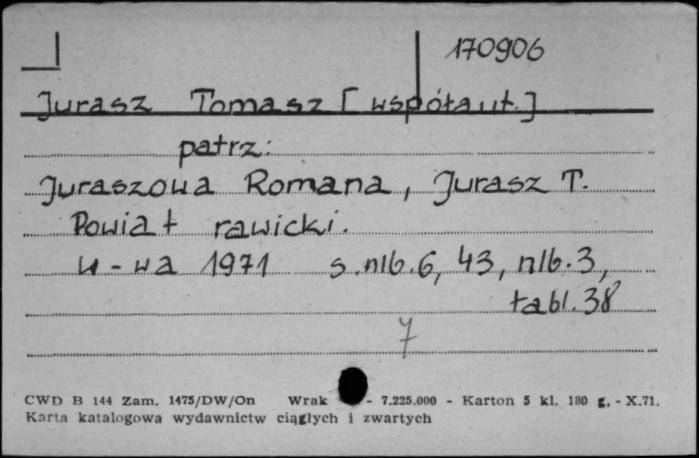 170906
Jurasz Tomasz [współaut.]
patrz:
Juraszowa Romana, Jurasz T.
Powiat rawicki.
W-wa 1971 s.nlb.6, 43, nlb.3,
tabl.38
7
CWD B 144 Zam. 1475/DW/On Wrak - 7.225.000 - Karton 5 kl. 180 g. - X.71.
Karta katalogowa wydawnictw ciągłych i zwartych